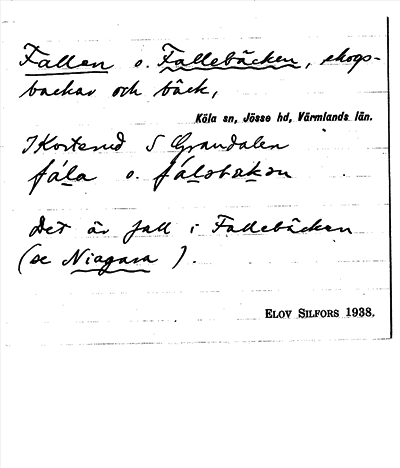 Fallen o. Fallebäcken, skogs-
backar och bäck,
Köla sn, Jösse hd, Värmlands län.
I Korterud S Grandalen
fála o.
Det är fall i Fallebäcken
(se Niagara ).
ELOV SILFORS 1938.